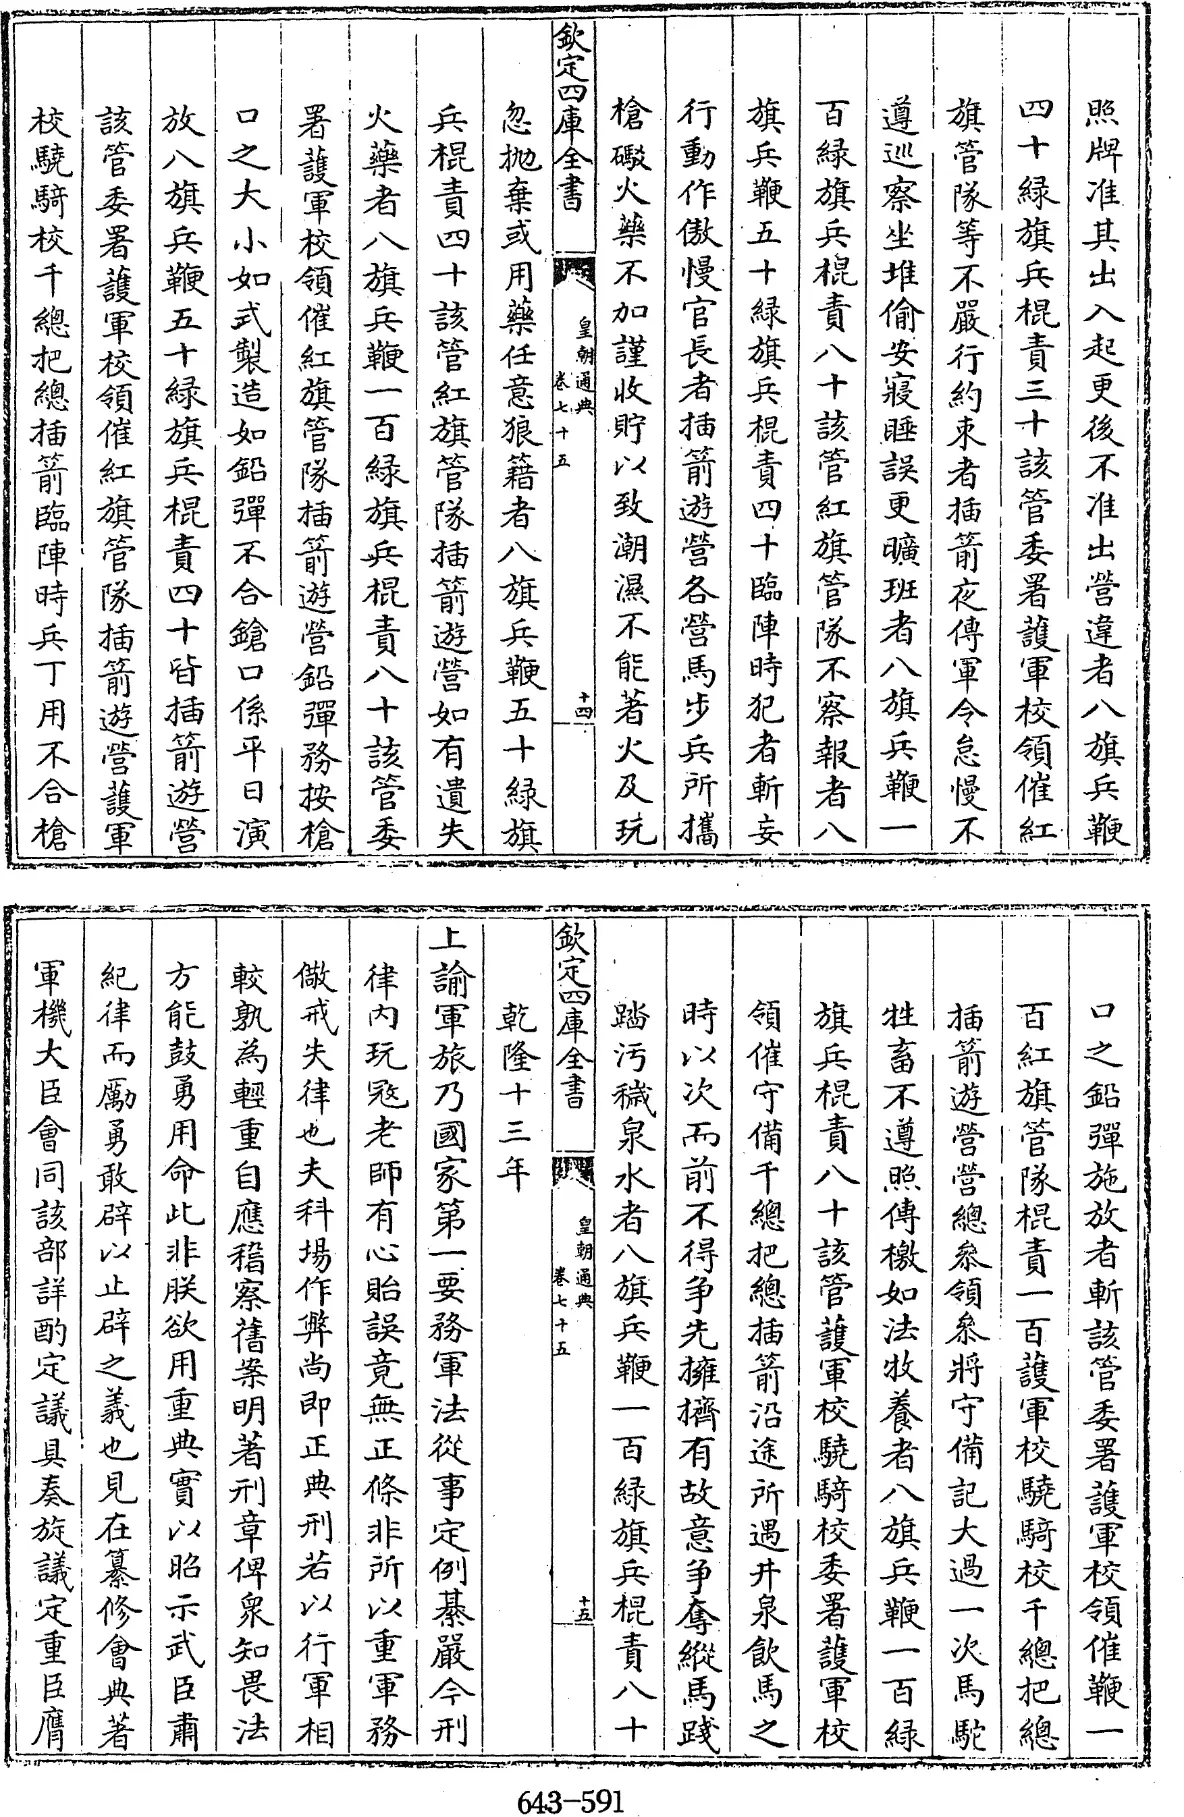 照牌准其出入起更後不准出營違者八旗兵鞭
四十緑旗兵棍責三十該管委署護軍校領催紅
旗管隊等不嚴行約束者插箭夜傳軍令怠慢不
遵巡察坐堆偷安寢睡誤更曠班者八旗兵鞭一
百緑旗兵棍責八十該管紅旗管隊不察報者八
旗兵鞭五十緑旗兵棍責四十臨陣時犯者斬妄
行動作傲慢官長者插箭遊營各營馬步兵所攜
槍礮火藥不加謹收貯以致潮濕不能著火及玩
欽定四庫全書
皇朝通典
卷七十五
十四
忽抛棄或用藥任意狼籍者八旗兵鞭五十緑旗
兵棍責四十該管紅旗管隊插箭遊營如有遺失
火藥者八旗兵鞭一百緑旗兵棍責八十該管委
署護軍校領催紅旗管隊插箭遊營鉛彈務按槍
口之大小如式製造如鉛彈不合鎗口係平日演
放八旗兵鞭五十緑旗兵棍責四十皆插箭遊營
該管委署護軍校領催紅旗管隊插箭遊營護軍
校驍騎校千總把總插箭臨陣時兵丁用不合槍
口之鉛彈施放者斬該管委署護軍校領催鞭一
百紅旗管隊棍責一百護軍校驍騎校千總把總
插箭遊營營總叅領叅將守備記大過一次馬駝
牲畜不遵照傳檄如法牧養者八旗兵鞭一百緑
旗兵棍責八十該管護軍校驍騎校委署護軍校
領催守備千總把總插箭沿途所遇井泉飲馬之
時以次而前不得争先擁擠有故意争奪縱馬踐
踏汚穢泉水者八旗兵鞭一百緑旗兵棍責八十
欽定四庫全書
皇朝通典
卷七十五
十五
乾隆十三年
上諭軍旅乃國家第一要務軍法從事定例綦嚴今刑
律内玩寇老師有心貽誤竟無正條非所以重軍務
儆戒失律也夫科場作弊尚即正典刑若以行軍相
較孰為輕重自應稽察舊案明著刑章俾衆知畏法
方能鼓勇用命此非朕欲用重典實以昭示武臣肅
紀律而勵勇敢辟以止辟之義也見在纂修會典著
軍機大臣會同該部詳酌定議具奏旋議定重臣膺
643-591